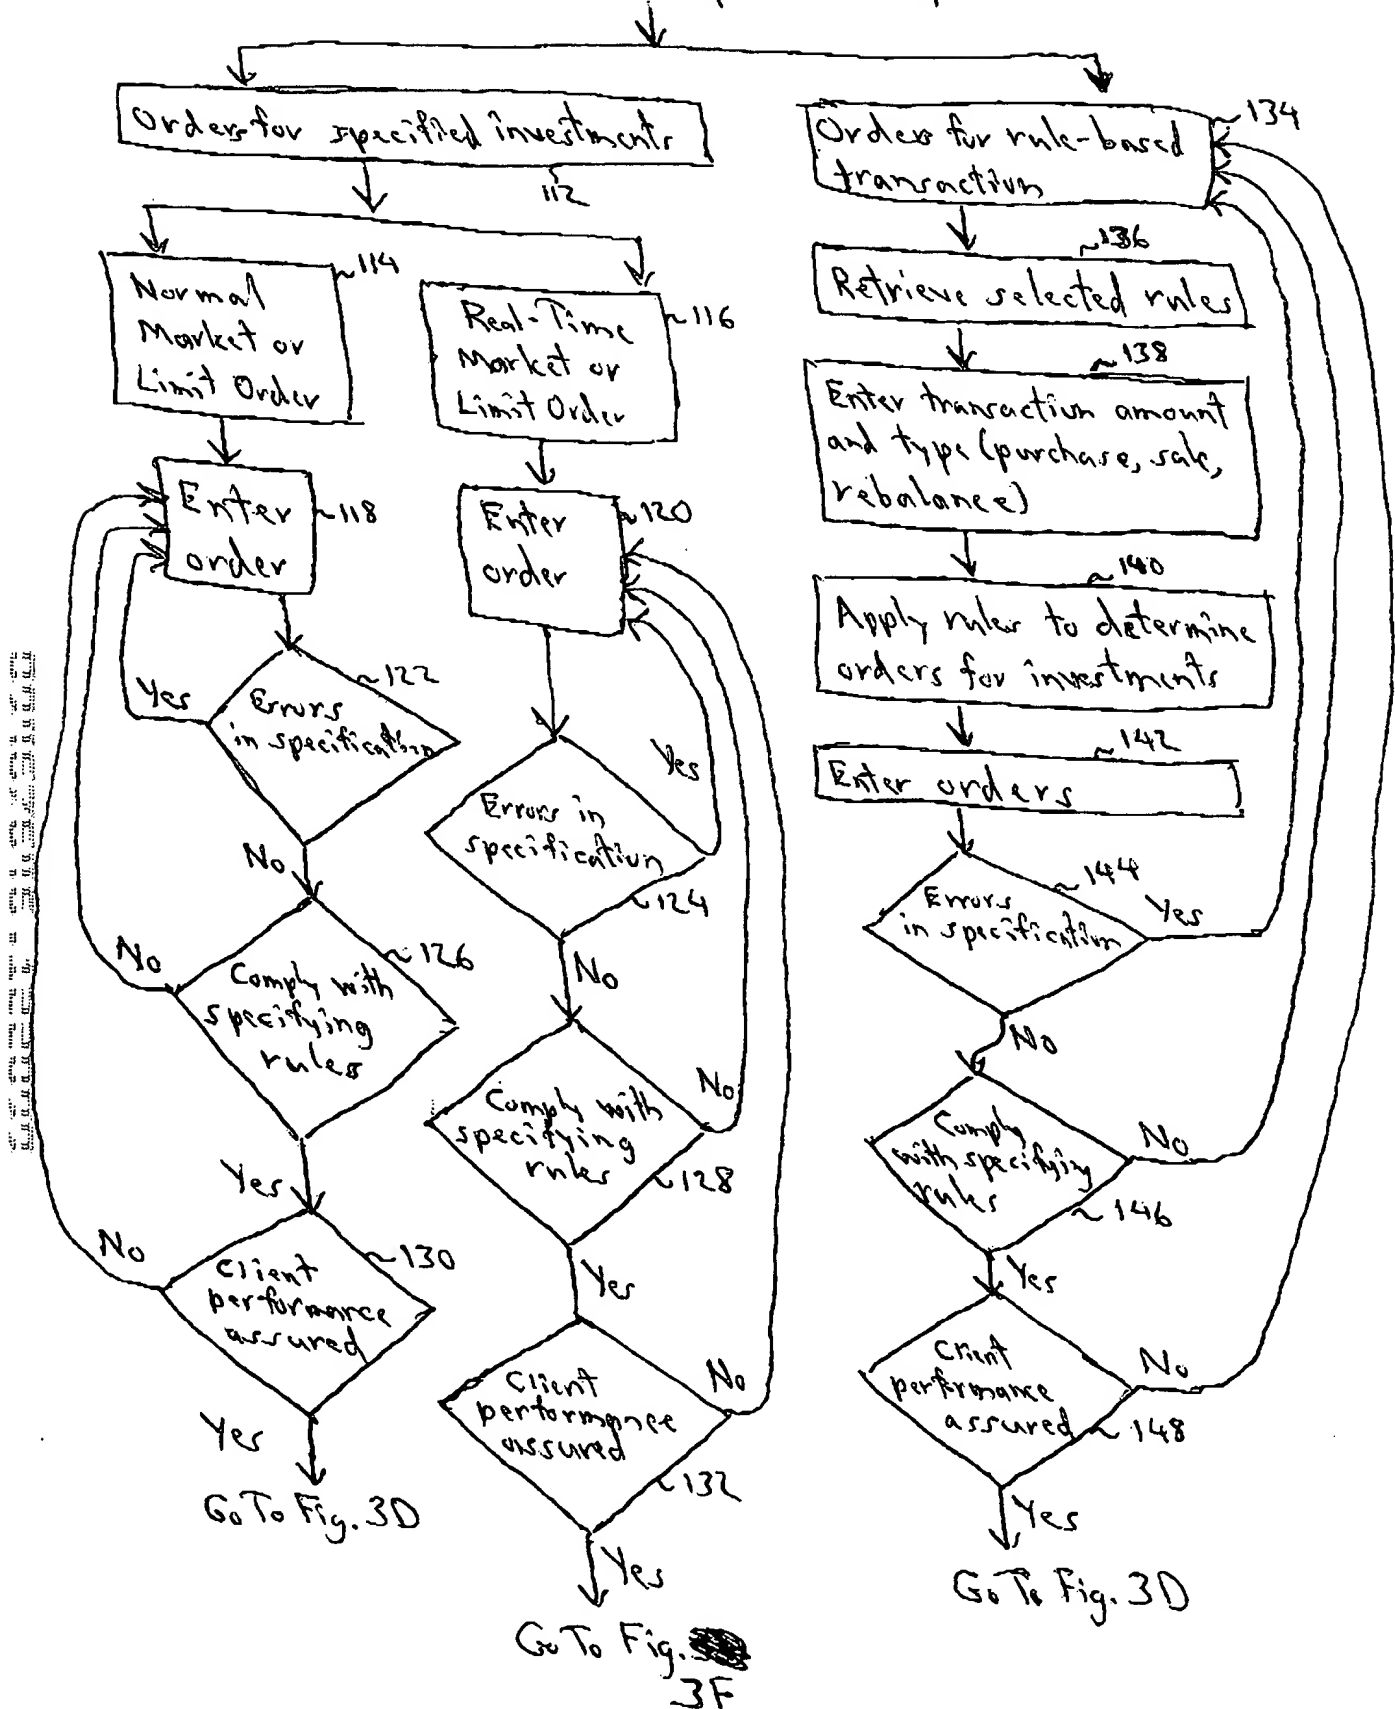 Orders for specified investments
112
Normal
Market or
Limit Order
114
Real-Time
Market or
Limit Order
116
Enter
order
118
Enter
order
120
Errors
in specification
122
Yes
No
Errors in
specification
124
Yes
No
Comply with
specifying
rules
126
No
Yes
Comply with
specifying
rules
128
No
Yes
Client
performance
assured
130
No
Yes
Go To Fig. 3D
Client
performance
assured
132
No
Yes
Go To Fig.
3F
Orders for rule-based
transaction
134
136
Retrieve selected rules
138
Enter transaction amount
and type (purchase, sale,
rebalance)
140
Apply rules to determine
orders for investments
142
Enter orders
144
Errors
in specification
Yes
No
Comply
with specifying
rules
146
No
Yes
Client
performance
assured
148
No
Yes
Go To Fig. 3D